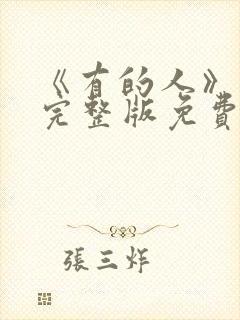 《有的人》
完整版免費
張三炸